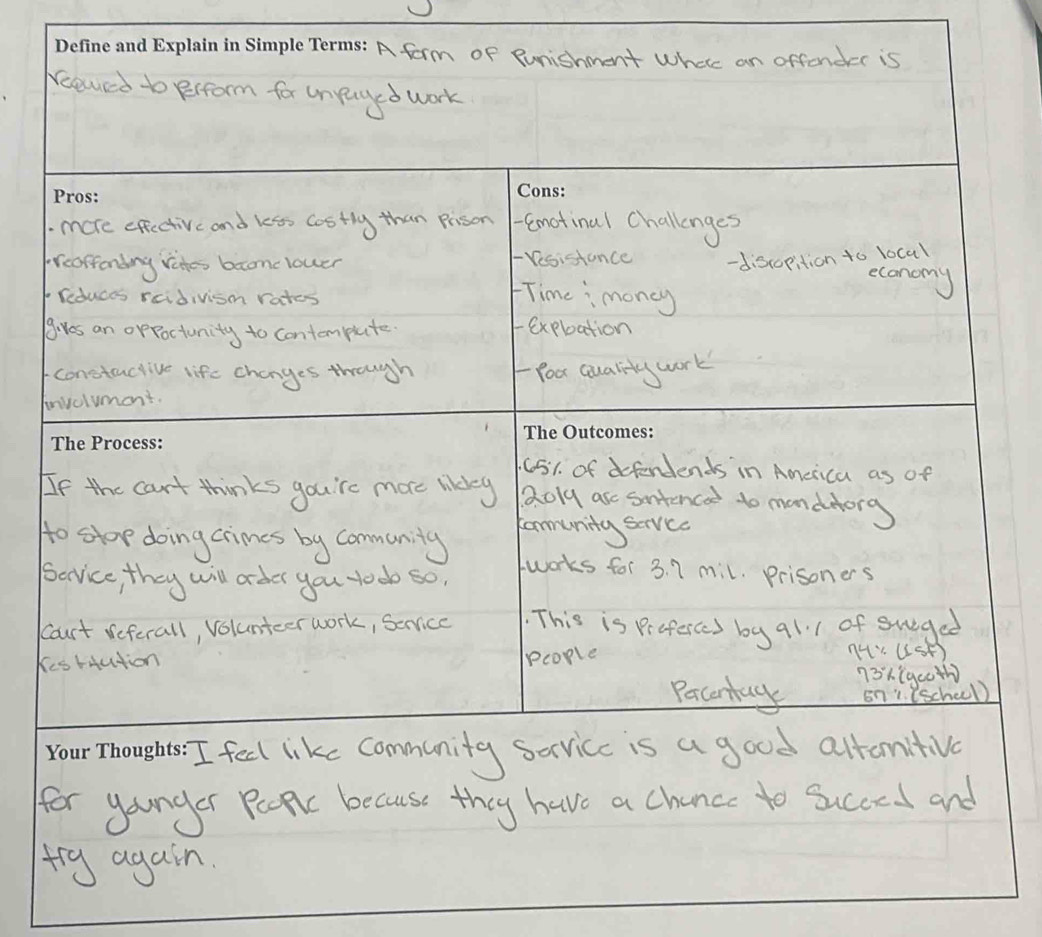 Define and Explain in Simple Terms: A form of Punishment where an offender is
required to perform for unpayed work.
Pros:
. more effective and less costly than Prison
. reoffending rates become lower
. reduces reidivism rates
gives an opportunity to contemplate.
. constuctive life changes through
involvment.
Cons:
- Emotinal Challenges
- resistance
- disropition to local
economy
- Time ; money
- Explbation
- Poor quality work
The Process:
If the court thinks you're more likley
to stop doing crimes by community
Service, they will order you to do so.
Court referall, Volunteer work, Service
restitution
The Outcomes:
. 65% of defendends in America as of
2019 are sentenced to mandatory
community service
. works for 3.7 mil. prisoners
. This is Prefered by 91% of
people
74% (1st)
73% (youth)
Percentage
67% (School)
Your Thoughts: I feel like community service is a good alternitive
for younger People because they have a chance to Succeed and
try again.